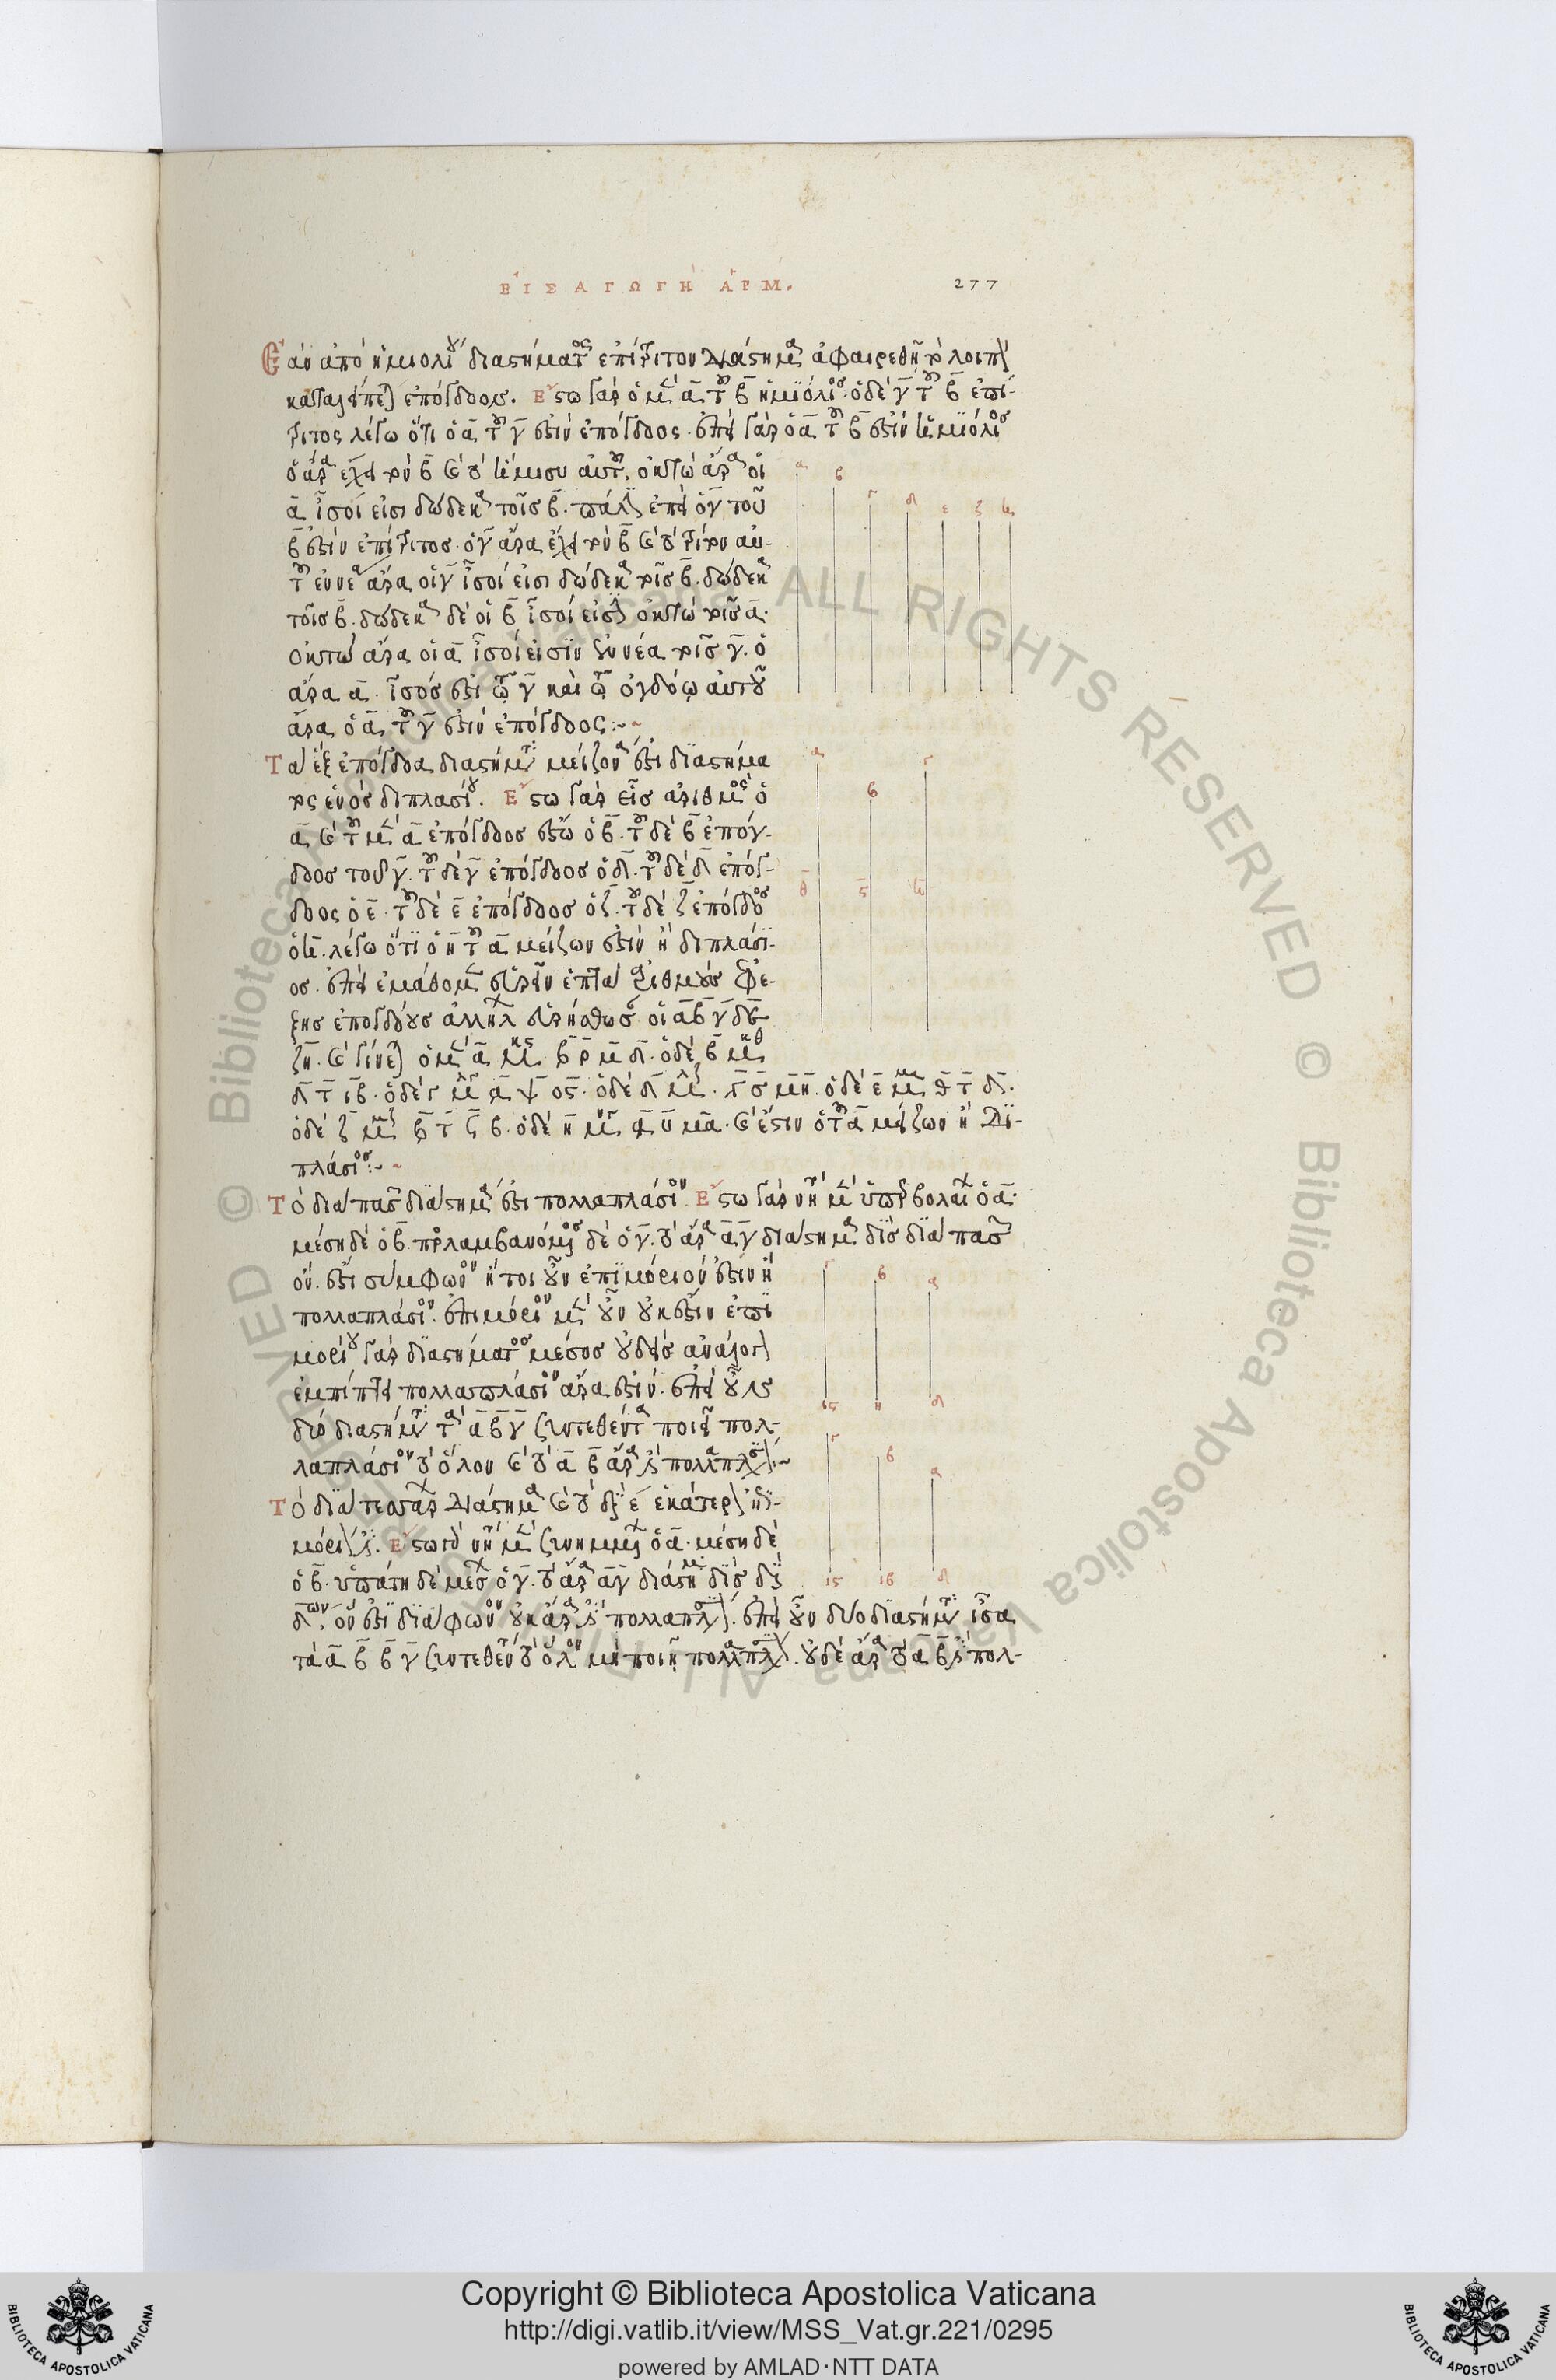 ΕΙΣΑΓΩΓΗ ΑΡΜ.
277
Ἐὰν ἀπὸ ἡμιολίου διαστήματος ἐπίτριτον διάστημα ἀφαιρεθῇ τὸ λοιπὸν
καταλείπεται ἐπόγδοον. Ἔστω γὰρ ὁ μὲν α τοῦ β ἡμιόλιος. ὁ δὲ γ τοῦ β ἐπί-
τριτος λέγω ὅτι ὁ α τοῦ γ ἐστὶν ἐπόγδοος. ἐπεὶ γὰρ ὁ α τοῦ β ἐστὶν ἡμιόλιος
ὁ α ἄρα ἔχει τὸν β καὶ τὸ ἥμισυ αὐτοῦ. ὀκτὼ ἄρα οἱ
α ἴσοι εἰσὶ δώδεκα τοῖς β. πάλιν ἐπεὶ ὁ γ τοῦ
β ἐστὶν ἐπίτριτος. ὁ γ ἄρα ἔχει τὸν β καὶ τὸ τρίτον αὐ-
τοῦ ἐννέα ἄρα οἱ γ ἴσοι εἰσὶ δώδεκα τοῖς β. δώδεκα
τοῖς β. δώδεκα δὲ οἱ β ἴσοι εἰσὶν ὀκτὼ τοῖς α.
ὀκτὼ ἄρα οἱ α ἴσοι εἰσὶν ἐννέα τοῖς γ. ὁ
ἄρα α. ἴσος ἐστὶ τῷ γ καὶ τῷ ὀγδόῳ αὐτοῦ
ἄρα ὁ α τοῦ γ ἐστὶν ἐπόγδοος:~
Τὰ ἓξ ἐπόγδοα διαστήματα μείζονά ἐστι διαστήμα
τος ἑνὸς διπλασίου. Ἔστω γὰρ εἷς ἀριθμὸς ὁ
α καὶ τοῦ μὲν α ἐπόγδοος ἔστω ὁ β. τοῦ δὲ β ἐπόγ-
δοος τοῦ γ. τοῦ δὲ γ ἐπόγδοος ὁ δ. τοῦ δὲ δ ἐπόγ-
δοος ὁ ε. τοῦ δὲ ε ἐπόγδοος ὁ ζ. τοῦ δὲ ζ ἐπόγδοος
ὁ η. λέγω ὅτι ὁ η τοῦ α μείζων ἐστὶν ἢ διπλάσι-
ος. ἐπεὶ ἐμάθομεν εὑρεῖν ἑπτὰ ἀριθμοὺς ἐφε-
ξῆς ἐπογδόους ἀλλήλων εὑρήσθωσαν οἱ α β γ δ ε
ζ η. καὶ γίνεται ὁ μὲν α
πλάσιος:~
Τὸ διὰ πασῶν διάστημά ἐστι πολλαπλάσιον. Ἔστω γὰρ νήτη μὲν ὑπερβολαίων ὁ α.
μέση δὲ ὁ β. προσλαμβανόμενος δὲ ὁ γ. τὸ ἄρα α γ διάστημα δὶς διὰ πασῶν
ὄν. ἐστὶ σύμφωνον ἤτοι οὖν ἐπιμόριόν ἐστιν ἢ
πολλαπλάσιον. ἐπιμόριον μὲν οὖν οὐκ ἔστιν ἐπι
μορίου γὰρ διαστήματος μέσος οὐδεὶς ἀνάλογον
ἐμπίπτει πολλαπλάσιον ἄρα ἐστίν. ἐπεὶ οὖν
δύο διαστήματα τὰ α β γ συντεθέντα ποιεῖ πολ-
λαπλάσιον τὸ ὅλον καὶ τὸ α β ἄρα ἐστὶ πολλαπλάσιον:~
Τὸ διὰ τεσσάρων διάστημα καὶ τὸ διὰ ε ἑκάτερον ἐπι-
μόριόν ἐστι. Ἔστω γὰρ νήτη μὲν συνημμένων ὁ α. μέση δὲ
ὁ β. ὑπάτη δὲ μέσων ὁ γ. τὸ ἄρα α γ διάστημα δὶς διὰ
δ ὂν ἐστὶ διάφωνον οὐκ ἄρα ἐστὶ πολλαπλάσιον. ἐπεὶ οὖν δύο διαστήματα ἴσα
τὰ α β β γ συντεθέντα τὸ ὅλον μὴ ποιῇ πολλαπλάσιον. οὐδὲ ἄρα τὸ α β ἐστὶ πολ-
α β γ δ ε ζ η
α β γ
γ β α
ις η δ
γ β α
ις ιβ δ
Copyright © Biblioteca Apostolica Vaticana
http://digi.vatlib.it/view/MSS_Vat.gr.221/0295
powered by AMLAD·NTT DATA
BIBLIOTECA APOSTOLICA VATICANA
BIBLIOTECA APOSTOLICA VATICANA